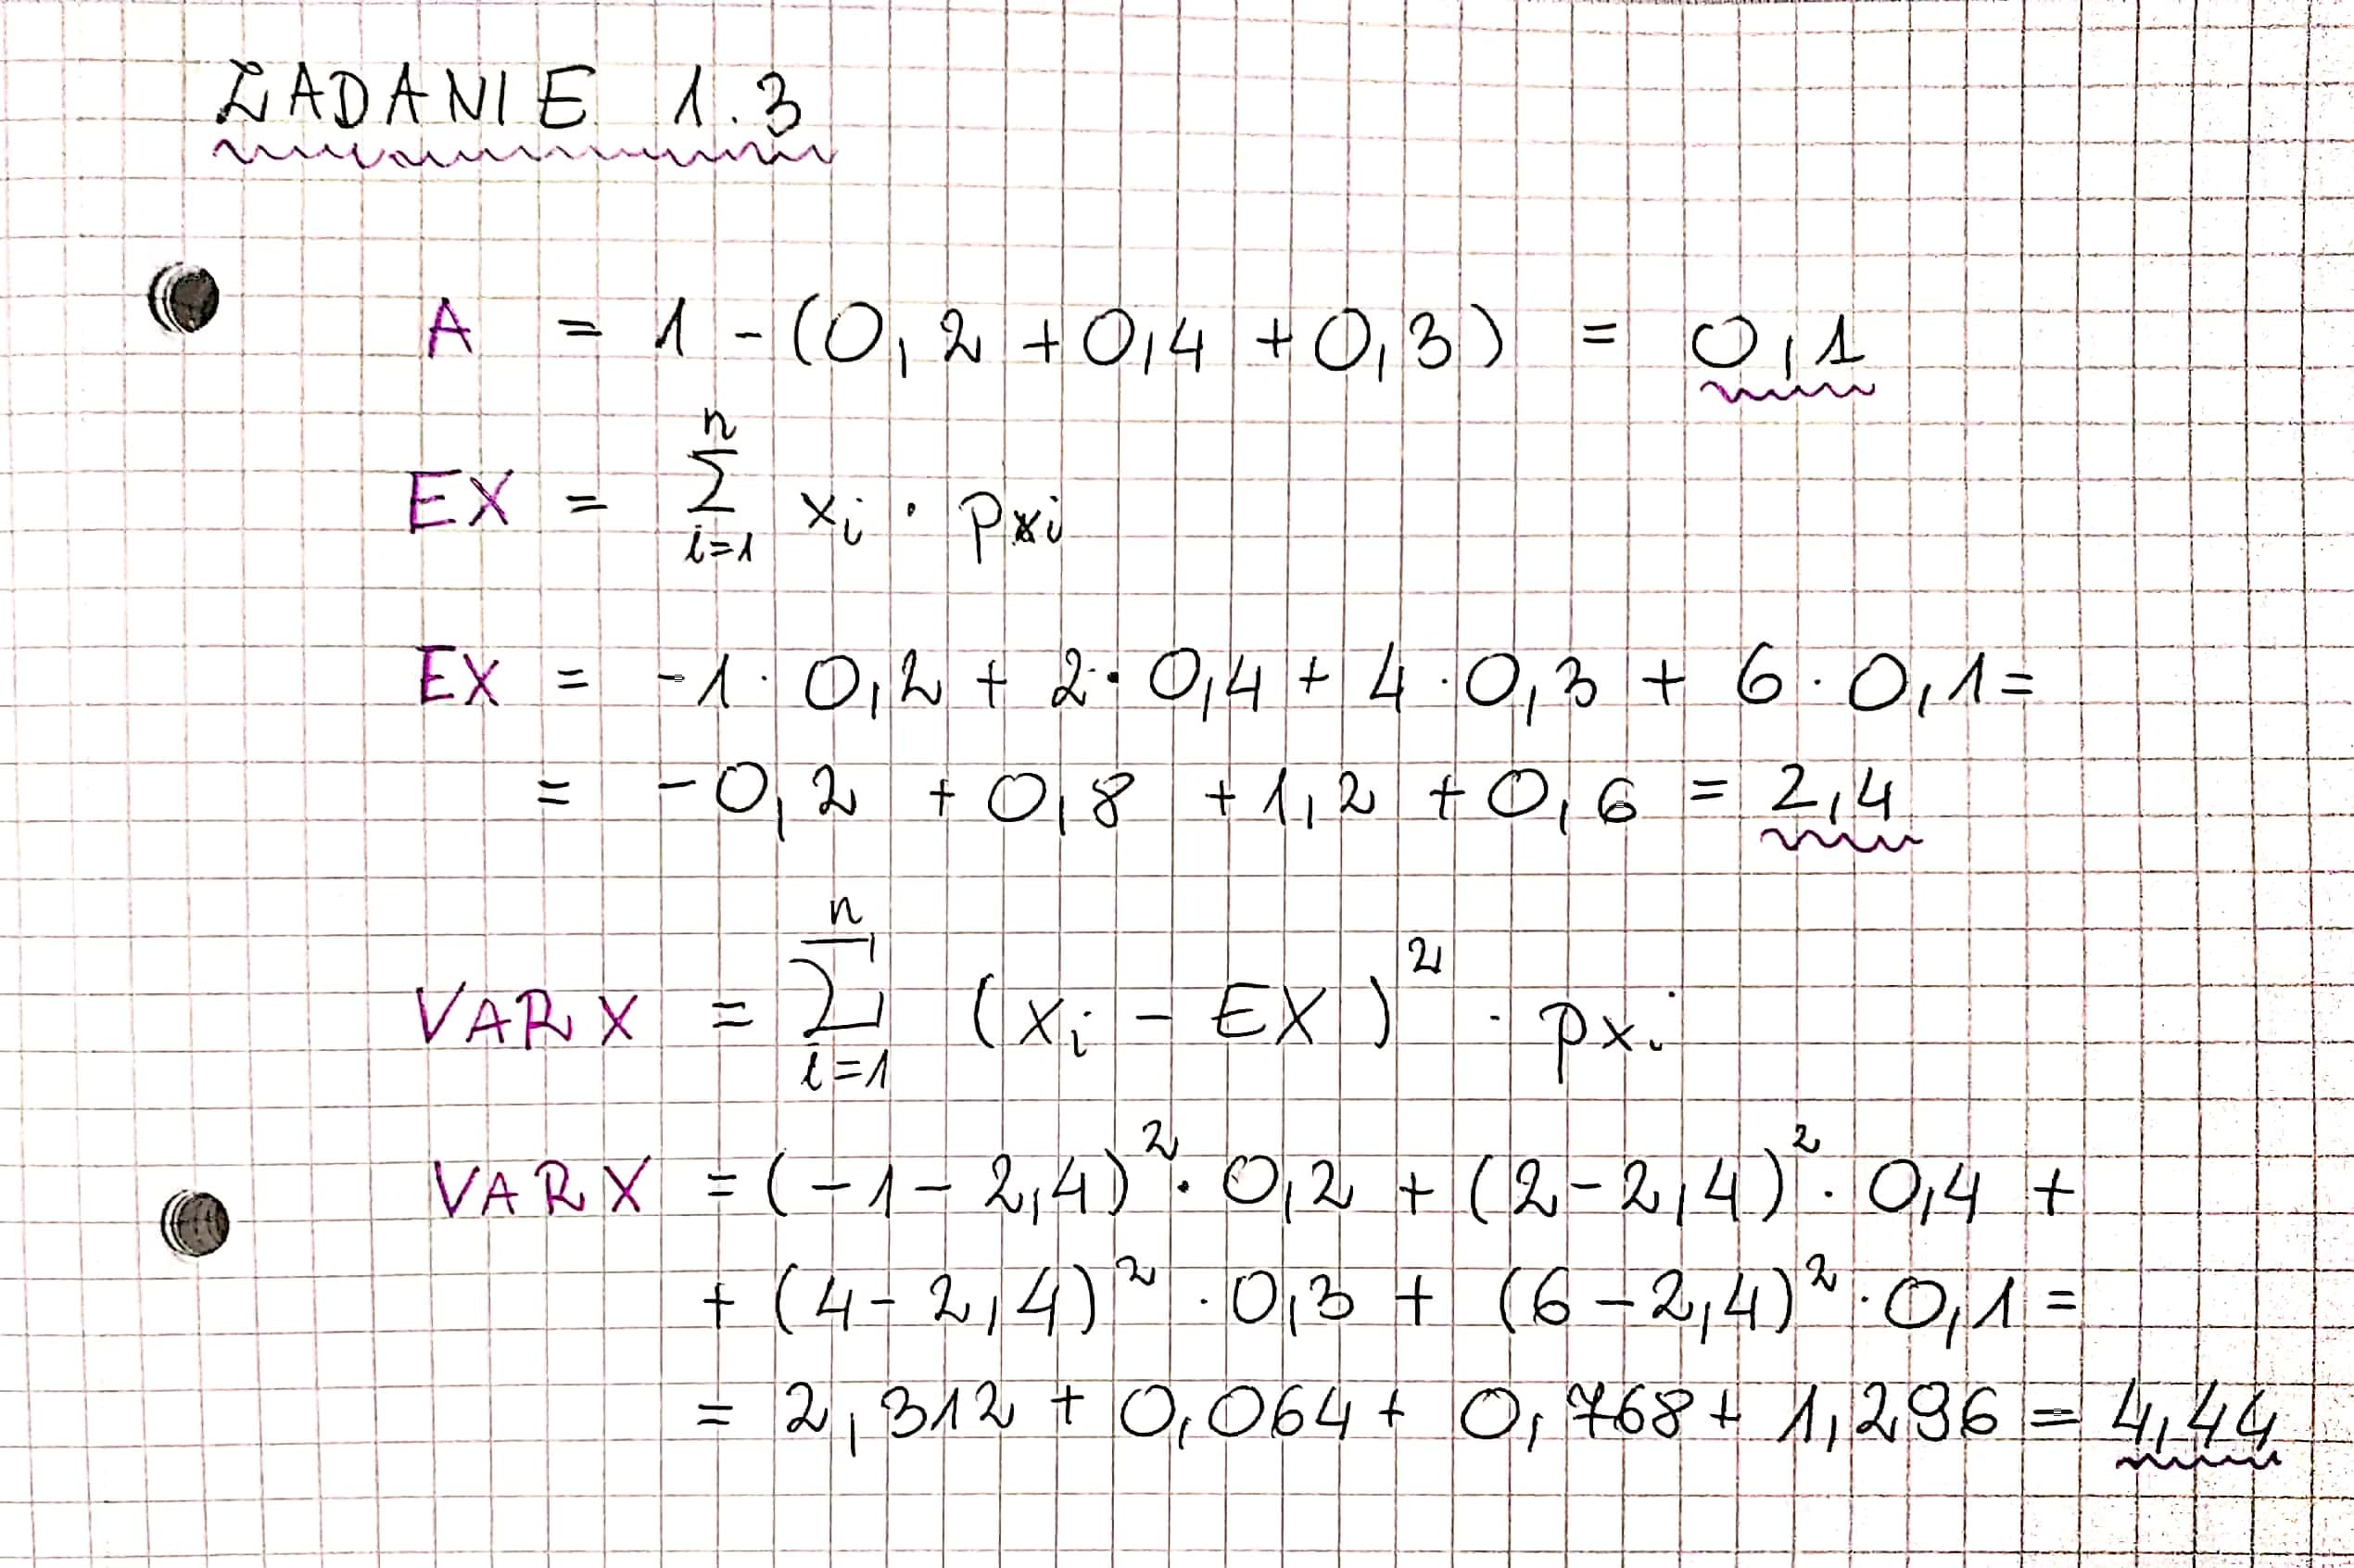 ZADANIE 1.3
A = 1 - (0,2 + 0,4 + 0,3) = 0,1
n
EX = Σ xi · pxi
i=1
EX = -1 · 0,2 + 2 · 0,4 + 4 · 0,3 + 6 · 0,1 =
= -0,2 + 0,8 + 1,2 + 0,6 = 2,4
n
VAR X = Σ (xi - EX)² · pxi
i=1
VAR X = (-1 - 2,4)² · 0,2 + (2 - 2,4)² · 0,4 +
+ (4 - 2,4)² · 0,3 + (6 - 2,4)² · 0,1 =
= 2,312 + 0,064 + 0,768 + 1,296 = 4,44